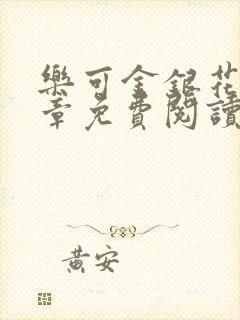 樂可金銀花
章免費閱讀
黃安